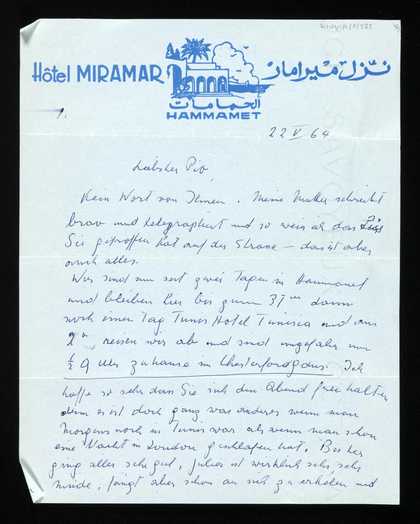 Hôtel MIRAMAR نزل ميرامار
الحمامات
HAMMAMET
1.
22 V 64
Liebster Pip,
Kein Wort von Ihnen. Meine Mutter schreibt
brav und telegraphiert und so weiss ich das
Sie getroffen hat auf der Strasse – das ist aber
auch alles.
Wir sind nun seit zwei Tagen in Hammamet
und bleiben hier bis zum 31ten dann
noch einen Tag Tunis Hotel Tunisia und am
2ten reisen wir ab und sind ungefähr um
½ 9 Uhr zuhause in Chesterfordgdns. Ich
hoffe so sehr dass Sie sich den Abend frei halten
denn es ist doch ganz was anderes wenn man
Morgens noch in Tunis war als wenn man schon
eine Nacht in London geschlafen hat. Bisher
ging alles sehr gut, Julius ist wirklich sehr, sehr
müde, fängt aber schon an sich zu erholen und